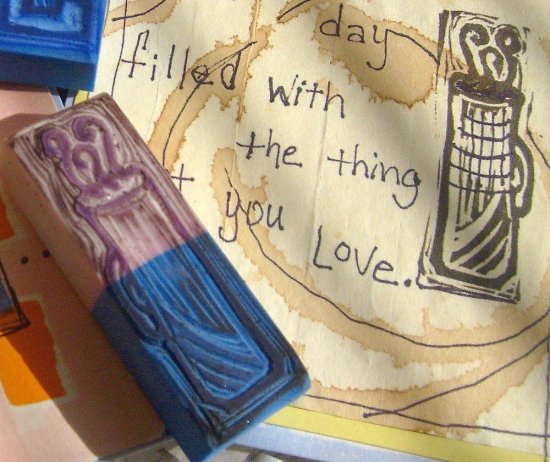 day
filled with
the thing
you
Love.